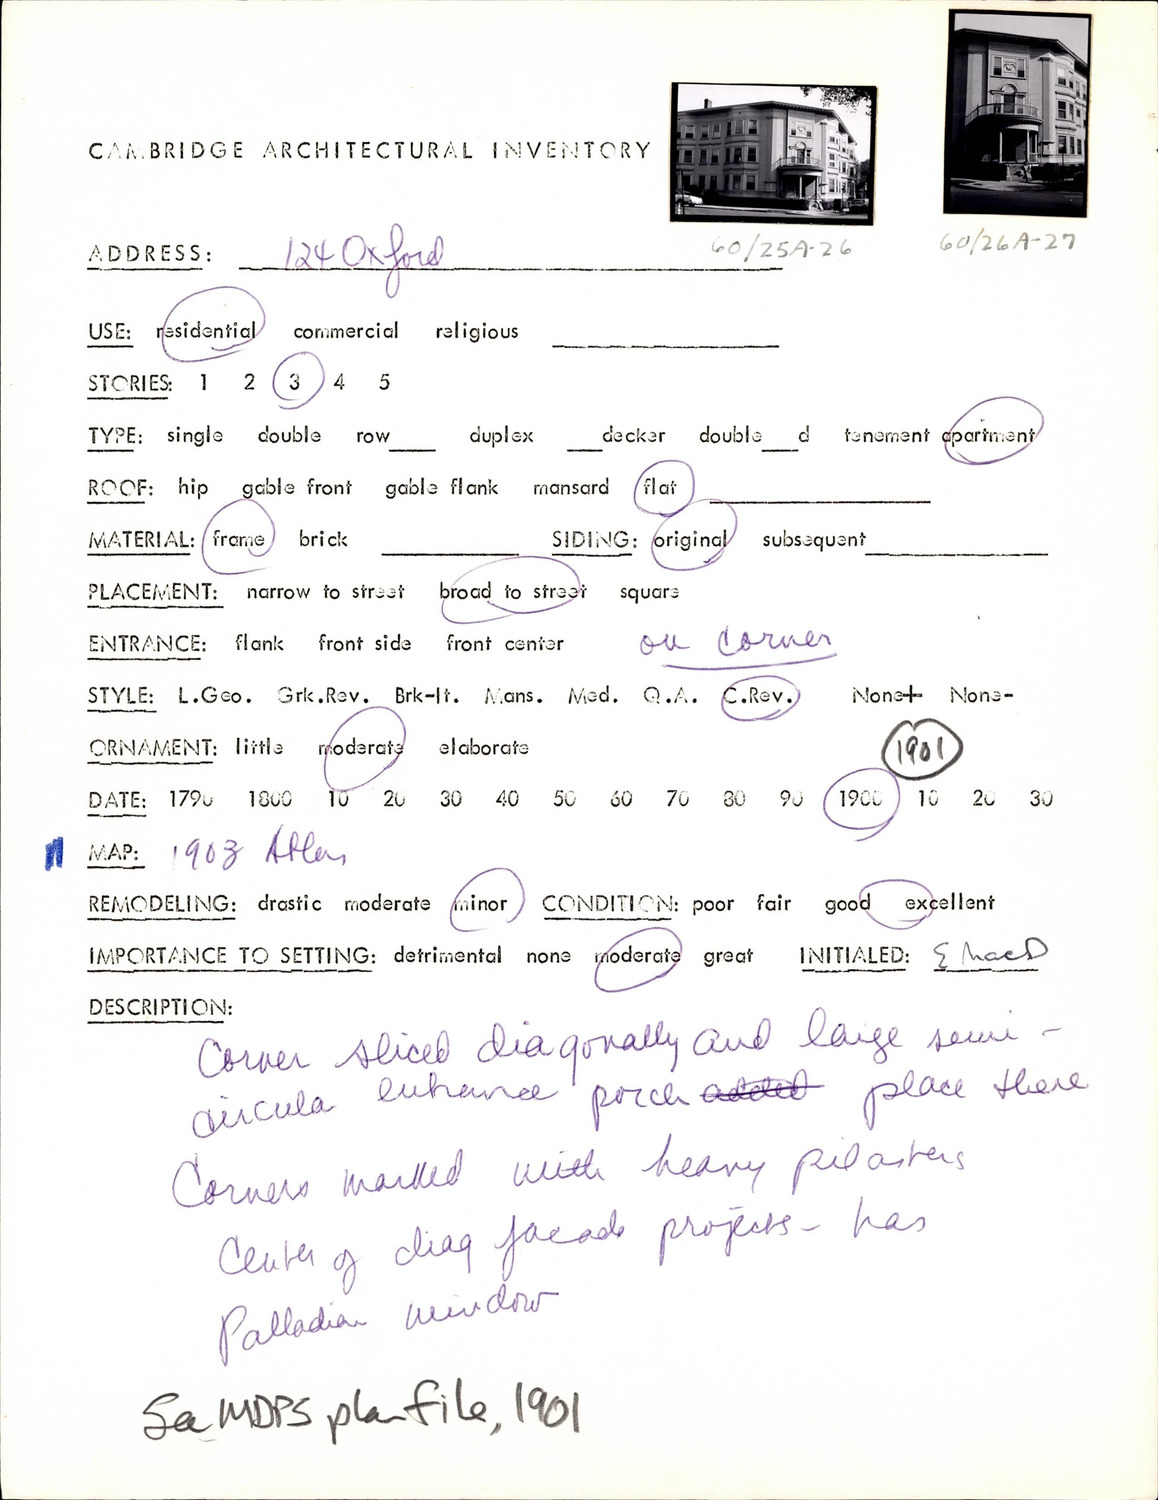 CAMBRIDGE ARCHITECTURAL INVENTORY
60/25A-26
60/26A-27
ADDRESS: 124 Oxford
USE: residential commercial religious
STORIES: 1 2 3 4 5
TYPE: single double row___ duplex ___decker double___d tenement apartment
ROOF: hip gable front gable flank mansard flat
MATERIAL: frame brick SIDING: original subsequent
PLACEMENT: narrow to street broad to street square
ENTRANCE: flank front side front center on corner
STYLE: L.Geo. Grk.Rev. Brk-It. Mans. Med. Q.A. C.Rev. None+ None-
ORNAMENT: little moderate elaborate 1901
DATE: 1790 1800 10 20 30 40 50 60 70 80 90 1900 10 20 30
MAP: 1903 Atlas
REMODELING: drastic moderate minor CONDITION: poor fair good excellent
IMPORTANCE TO SETTING: detrimental none moderate great INITIALED: E MacD
DESCRIPTION:
Corner sliced diagonally and large semi-
circula entrance porch added place there
Corners marked with heavy pilasters
Center of diag facade projects - has
Palladian window
See MDPS plan file, 1901